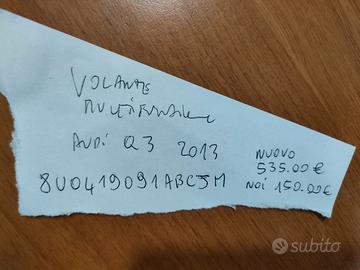 VOLANTE
MULTIFUNZIONE
AUDI Q3 2013
8U0419091ABCJM
NUOVO
535.00€
NOI 150.00€
subito